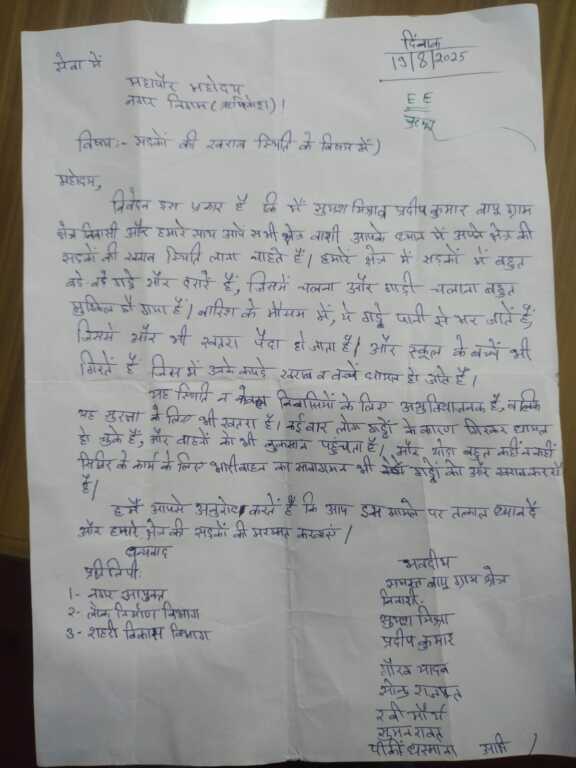 दिनांक
19/8/2025
सेवा में
महापौर महोदय
नगर निगम (ऋषिकेश)।
E E
विषय:- सड़कों की खराब स्थिति के विषय में)
महोदय,
निवेदन इस प्रकार है कि मैं सुषमा मिश्रा व प्रदीप कुमार बापू ग्राम
क्षेत्र निवासी और हमारे साथ आये सभी क्षेत्र वाशी आपके ध्यान में अपने क्षेत्र की
सड़कों की खराब स्थिति लाना चाहते हैं। हमारे क्षेत्र में सड़कों में बहुत
बड़े बड़े गड्ढे और दरारें हैं, जिसमें चलना और गाड़ी चलाना बहुत
मुश्किल हो गया है। बारिश के मौसम में, ये गड्ढे पानी से भर जाते हैं,
जिससे और भी खतरा पैदा हो जाता है। और स्कूल के बच्चे भी
गिरते है जिस में उनके कपड़े खराब व बच्चे घायल हो जाते है।
यह स्थिति न केवल निवासियों के लिए असुविधाजनक है, बल्कि
यह सुरक्षा के लिए भी खतरा है। कई बार लोग गड्ढों के कारण गिरकर घायल
हो चुके हैं, और वाहनों को भी नुकसान पहुंचता है। और थोड़ा बहुत कहीं न कहीं
के कार्य के लिए भारी वाहन का आवागमन भी गड्ढों को और खराब कर रहे
है।
हमें आपसे अनुरोध करते हैं कि आप इस मामले पर तत्काल ध्यान दें
और हमारे क्षेत्र की सड़कों की मरम्मत करवाएं।
धन्यवाद
प्रतिलिपी:
1- नगर आयुक्त
2- लोक निर्माण विभाग
3- शहरी विकास विभाग
भवदीय
समस्त बापू ग्राम क्षेत्र
निवासी:
सुषमा मिश्रा
प्रदीप कुमार
गौरव यादव
राजपूत
रवी मौर्य
सुमन रावत
आदि